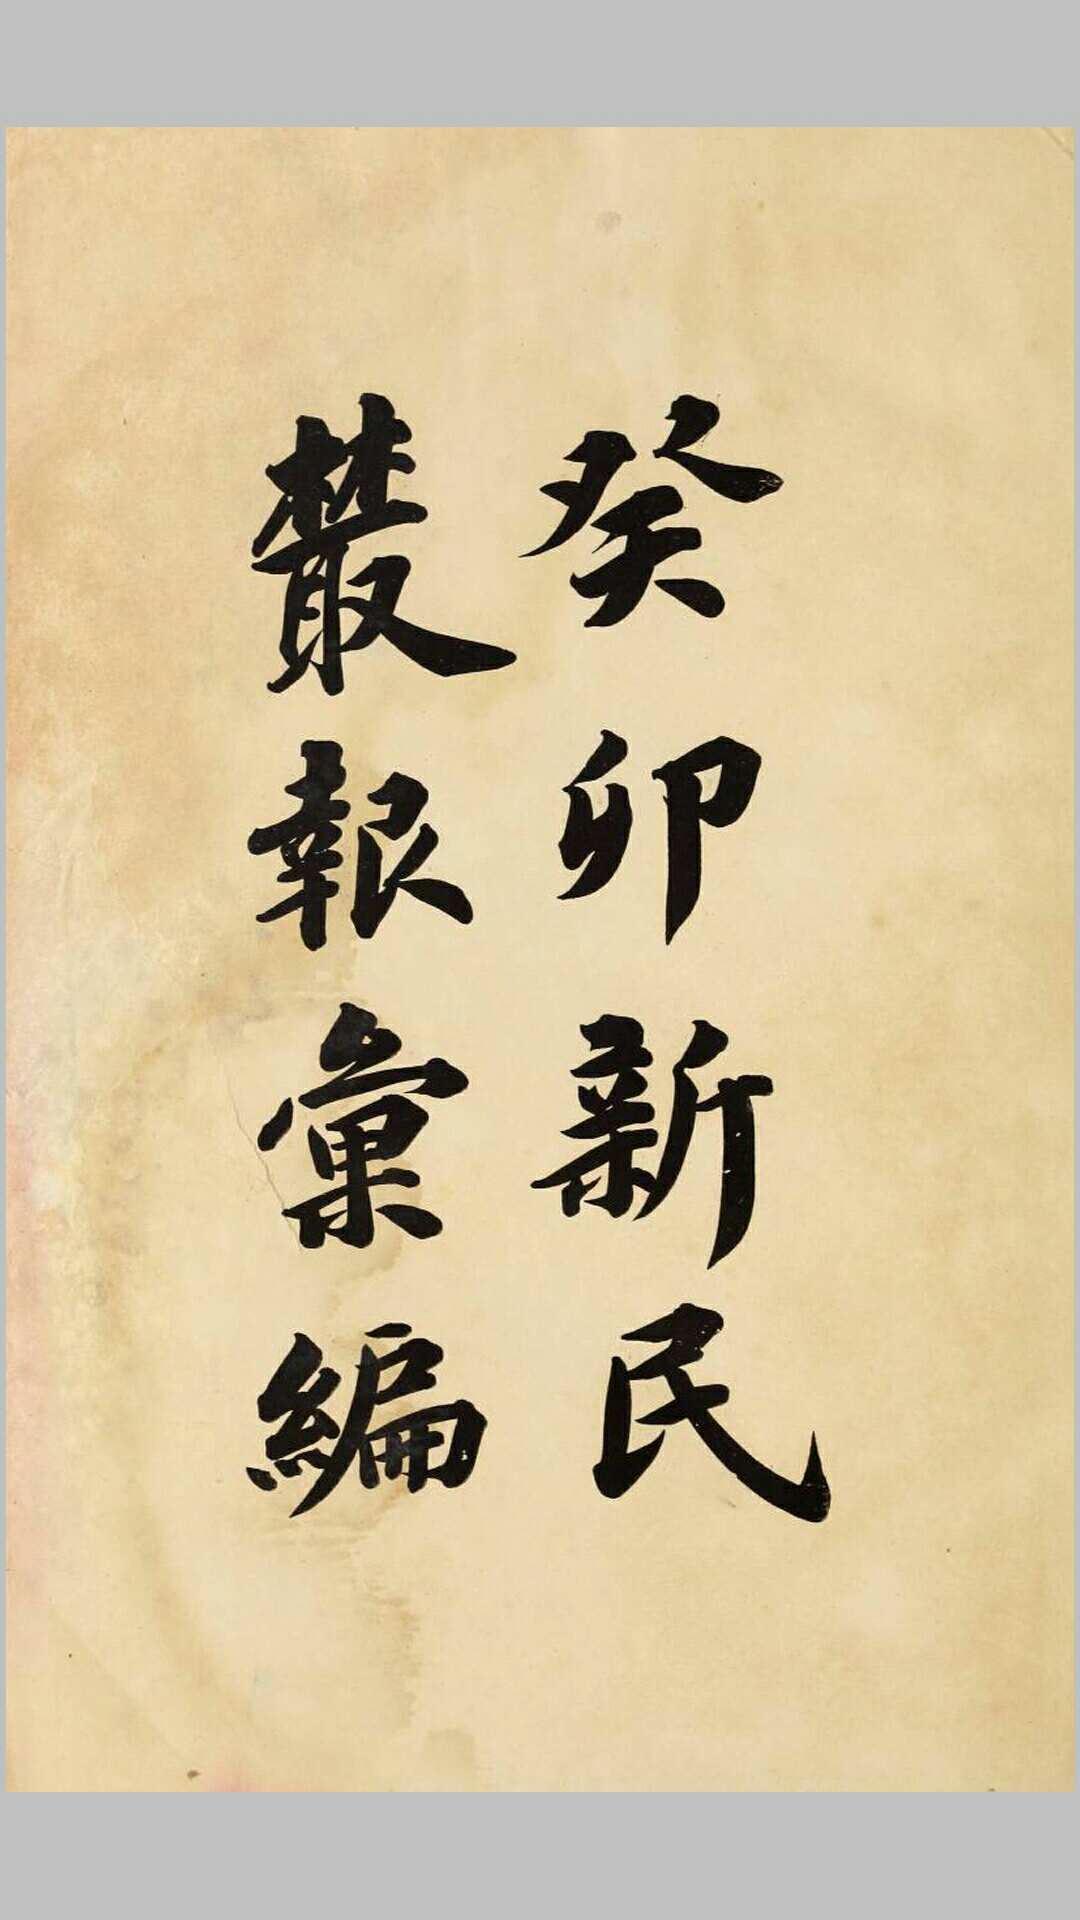 癸卯新民
叢報彙編